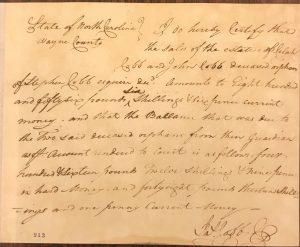 State of North Carolina } I do hereby Certify that
Wayne County } the sales of the estates of
Cobb and John Cobb deceased orphan
of Stephen Cobb esquire decd. Amounts to Eight hundred
and fifty six pounds, six Shillings & five pence current
money - and that the Ballance that was due to
the two said deceased orphans from their Guardian
as pr Account rendered to court is as follows four
hundred & Sixteen pounds Twelve Shillings & Nine pence
in hard Money - and forty eight pounds thirteen Shill-
ings and one penny Current Money
Cobb
213